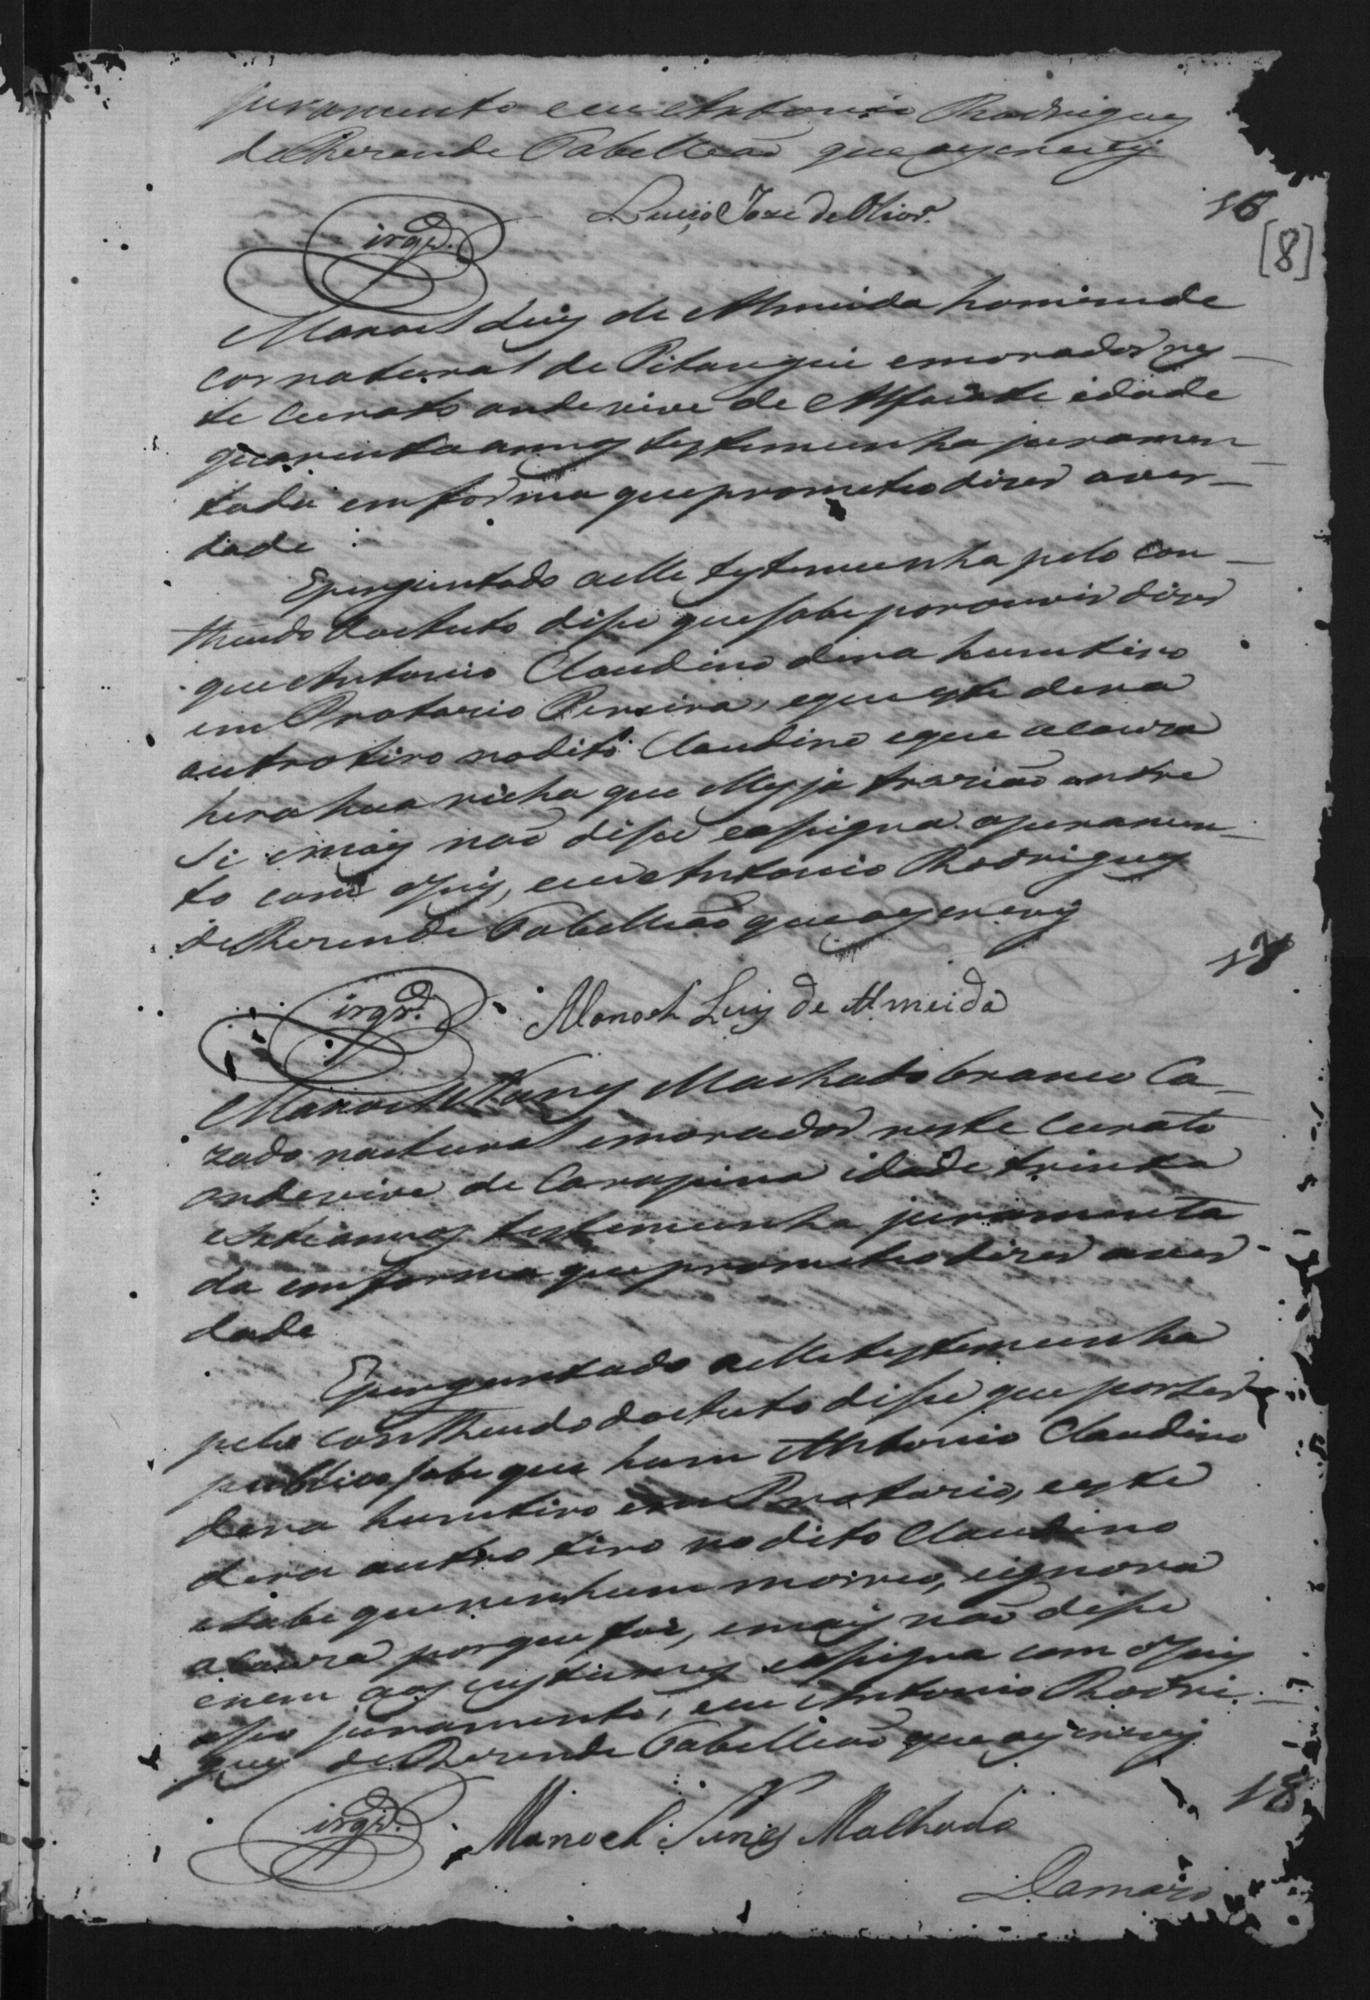 juramento eeu Antonio Rodrigues
de Rezende Tabelleaõ que oescrevy
Lucio Joze de Olivr.ª
16
[8]
Manoel Luis de Almeida homem de
cor natural de Pitangui emorador nes
te Curato ondevive de Alfaiate idade
quarenta annos testemunha juramen
tada emforma queprometeo dizer aver
dade
Eperguntado aelle testemunha pelo con
theudo doAuto disse quesabe porouvir dizer
que Antonio Claudino dera humtiro
em Protazio Pereira, eque este dera
outrotiro nodito Claudino eque acauza
hera hua richa que elles ja traziaõ entre
si emais naõ disse easigna ojuramen
to com oJuis, eeu Antonio Rodrigues
de Rezende Tabelleaõ queoescrevy
17
Manoel Luis de Almeida
Manoel Nunes Machado branco Ca
zado natural emorador neste Curato
ondevive de Carapina idade trinta
esete annos testemunha juramenta
da emforma queprometeo dizer aver
dade
Eperguntado aelle testemunha
pelo contheudo doAuto disse que porser
publico sabe que hum Antonio Claudino
dera humtiro em Protazio, eeste
dera outro tiro nodito Claudino
esabe quenenhum morreo, eignora
acauza porque foi, emais naõ disse
enem aos custumes easigna com oJuis
oseo juramento, eeu Antonio Rodri
gues de Rezende Tabelleaõ que oescrevy
18
Manoel Nunes Malhado
Damazo